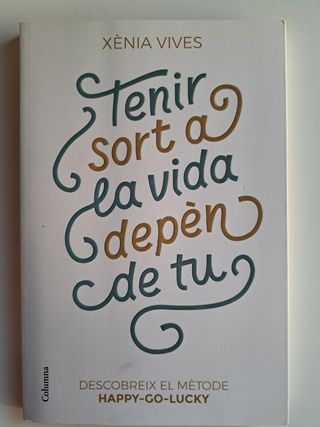 XÈNIA VIVES
Tenir
sort a
la vida
depèn
de tu
DESCOBREIX EL MÈTODE
HAPPY-GO-LUCKY
Columna